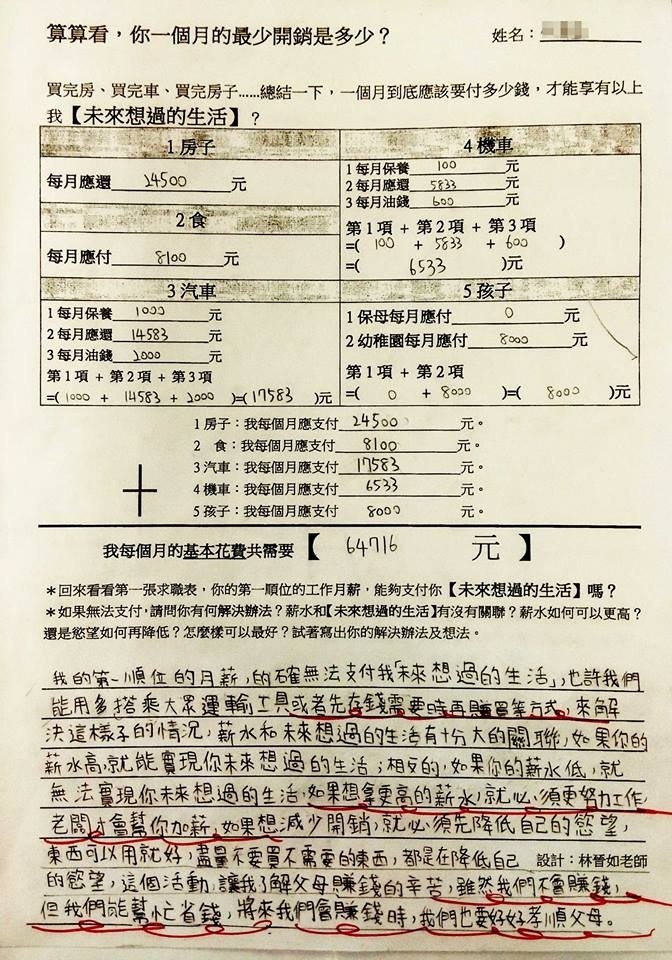 算算看，你一個月的最少開銷是多少？ 姓名：
買完房、買完車、買完房子……總結一下，一個月到底應該要付多少錢，才能享有以上
我【未來想過的生活】？
1 房子
每月應還 24500 元
2 食
每月應付 8100 元
3 汽車
1 每月保養 1000 元
2 每月應還 14583 元
3 每月油錢 2000 元
第 1 項 + 第 2 項 + 第 3 項
=( 1000 + 14583 + 2000 )=( 17583 )元
4 機車
1 每月保養 100 元
2 每月應還 5833 元
3 每月油錢 600 元
第 1 項 + 第 2 項 + 第 3 項
=( 100 + 5833 + 600 )
=( 6533 )元
5 孩子
1 保母每月應付 0 元
2 幼稚園每月應付 8000 元
第 1 項 + 第 2 項
=( 0 + 8000 )=( 8000 )元
1 房子：我每個月應支付 24500 元。
2 食：我每個月應支付 8100 元。
3 汽車：我每個月應支付 17583 元。
4 機車：我每個月應支付 6533 元。
5 孩子：我每個月應支付 8000 元。
+
我每個月的基本花費共需要【 64716 元 】
＊回來看看第一張求職表，你的第一順位的工作月薪，能夠支付你【未來想過的生活】嗎？
＊如果無法支付，請問你有何解決辦法？薪水和【未來想過的生活】有沒有關聯？薪水如何可以更高？
還是慾望如何再降低？怎麼樣可以最好？試著寫出你的解決辦法及想法。
我的第一順位的月薪，的確無法支付我「未來想過的生活」，也許我們
能用多搭乘大眾運輸工具或者先存錢需要時再購買等方式，來解
決這樣子的情況，薪水和未來想過的生活有十分大的關聯，如果你的
薪水高，就能實現你未來想過的生活；相反的，如果你的薪水低，就
無法實現你未來想過的生活，如果想拿更高的薪水，就必須更努力工作，
老闆才會幫你加薪，如果想減少開銷，就必須先降低自己的慾望，
東西可以用就好，盡量不要買不需要的東西，都是在降低自己 設計：林晉如老師
的慾望，這個活動讓我了解父母賺錢的辛苦，雖然我們不會賺錢，
但我們能幫忙省錢，將來我們會賺錢時，我們也要好好孝順父母。